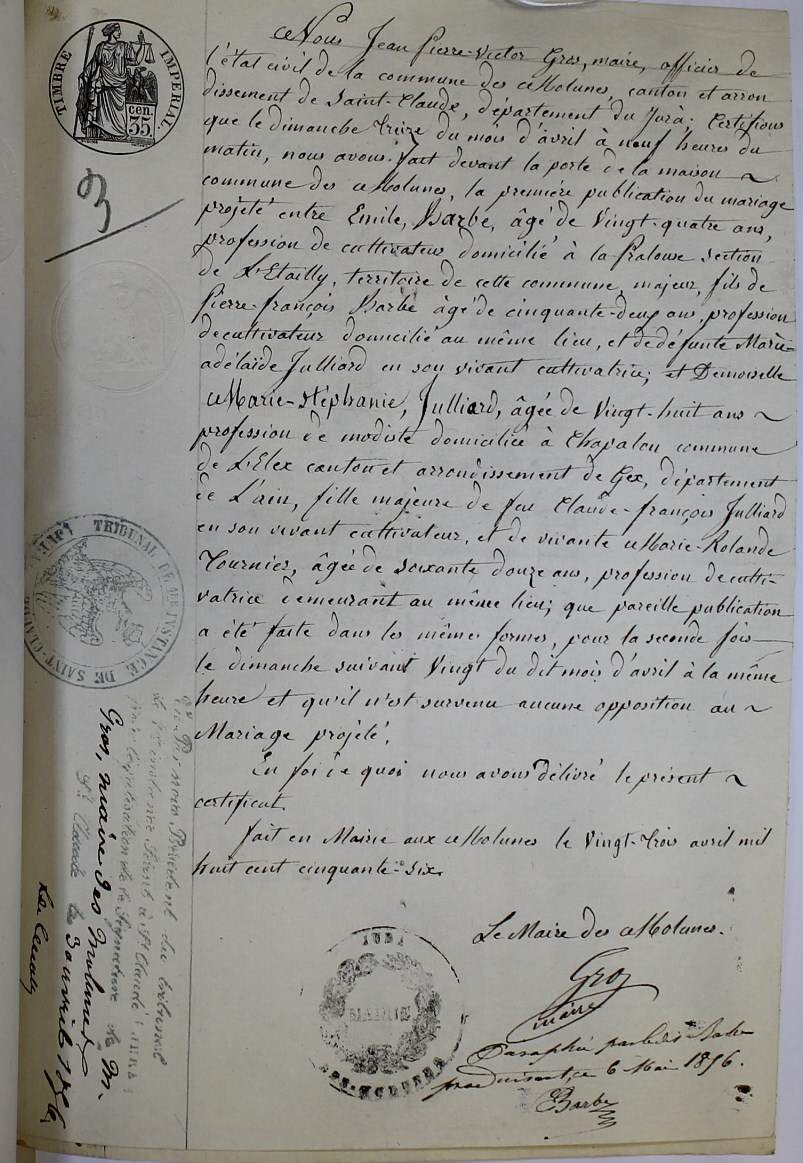 TIMBRE IMPERIAL
35 cen.
3
Nous Jean Pierre-Victor Gros, maire, officier de
l'état civil de la commune des Molunes, canton et arron
dissement de Saint-Claude, département du Jura; Certifions
que le dimanche treize du mois d'avril à neuf heures du
matin, nous avons fait devant la porte de la maison
commune des Molunes, la première publication du mariage
projeté entre Emile, Barbe, âgé de Vingt-quatre ans,
profession de cultivateur domicilié à la Pralowe section
de L'Etailly, territoire de cette commune, majeur, fils de
Pierre-françois Barbe âgé de cinquante-deux ans, profession
de cultivateur domicilié au même lieu, et de défunte Marie-
adélaïde Julliard en son vivant cultivatrice; et Demoiselle
Marie-stéphanie, Julliard, âgée de Vingt-huit ans
profession de modiste domiciliée à Chapalou commune
de L'Elex canton et arrondissement de Gex, département
de L'ain, fille majeure de feu Claude-françois Julliard
en son vivant cultivateur, et de vivante Marie-Rolande
Tournier, âgée de soixante douze ans, profession de culti-
vatrice demeurant au même lieu; que pareille publication
a été faite dans les même formes, pour la seconde fois
le dimanche suivant Vingt du dit mois d'avril à la même
heure et qu'il n'est survenu aucune opposition au
Mariage projeté.
En foi de quoi nous avons délivré le présent
certificat.
fait en Mairie aux Molunes le Vingt-trois avril mil
huit cent cinquante-six.
Le Maire des Molunes.
Gros
maire
Paraphé par ledit Barbe
produisant, ce 6 Mai 1856.
Barbe
JURA
MAIRIE
DES MOLUNES
TRIBUNAL DE 1RE INSTANCE DE SAINT-CLAUDE (JURA)
Président du tribunal
de 1re instance séant à St Claude (Jura)
pour légalisation de la signature de M.
Gros, maire des Molunes
St Claude le 30 avril 1856